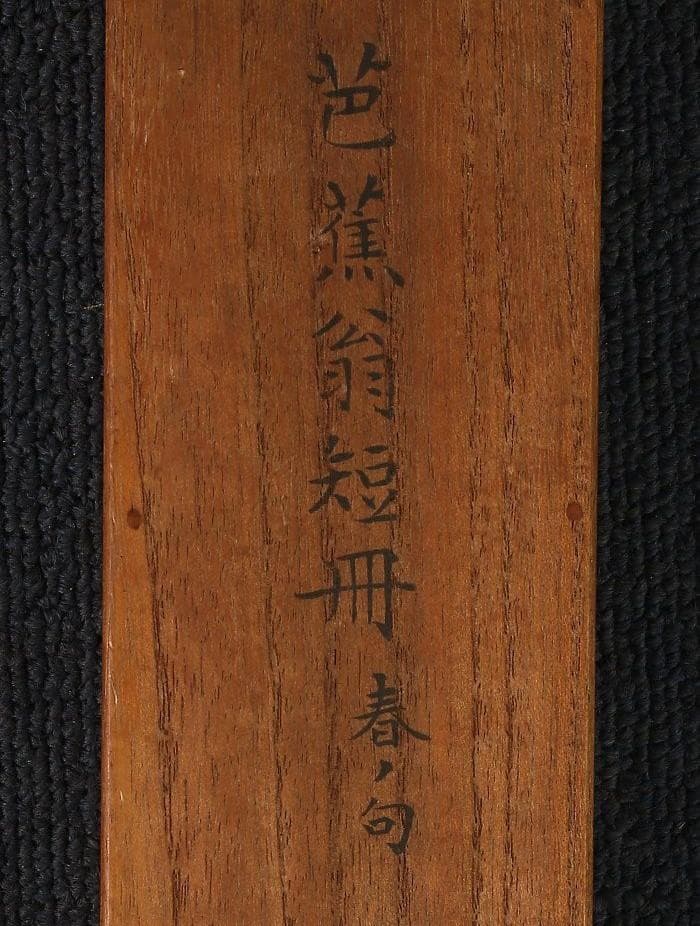 芭蕉翁短冊
春ノ句